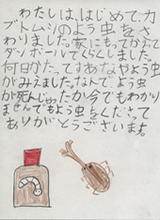 わたしは、はじめて、カ
ブトムシのよう虫をさ
わりました。家にもってかえて
ダンボールでくらしました。
何日かたってすあなやよう虫
がみえました。なんでよう虫
が死んじゃったか今でもわかり
ませんでもよう虫をくださって
ありがとうございます。